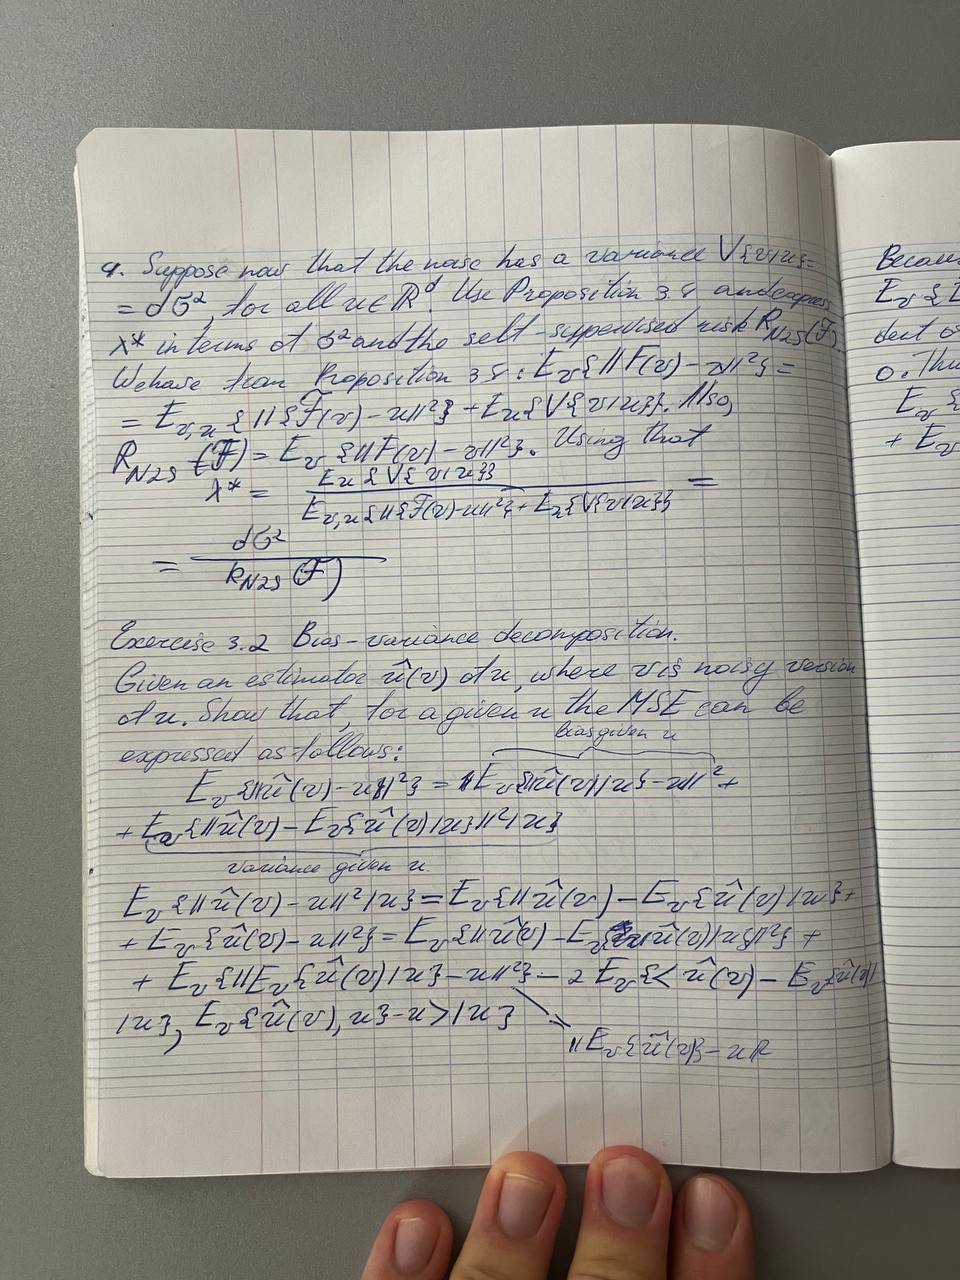 4. Suppose now that the noise has a variance V{v|u}=
= dσ², for all u∈ℝᵈ. Use Proposition 3.4 and express
λ* in terms of σ² and the self-supervised risk R_N2S(F).
We have from Proposition 3.4: E_v{||F(v)-v||²}=
= E_v,u{||{F(v)-u||²} + E_u{V{v|u}}. Also,
R_N2S(F) = E_v{||F(v)-v||²}. Using that
λ* = E_u{V{v|u}} / E_v,u{||{F(v)-u||²} + E_u{V{v|u}} =
= dσ² / R_N2S(F)
Exercise 3.2 Bias-variance decomposition.
Given an estimator û(v) of u, where v is noisy version
of u. Show that, for a given u the MSE can be
expressed as follows:
bias given u
E_v{||û(v)-u||²} = ||E_v{û(v)|u}-u||² +
+ E_v{||û(v)-E_v{û(v)|u}||²|u}
variance given u
E_v{||û(v)-u||²|u} = E_v{||û(v)-E_v{û(v)|u}+
+ E_v{û(v)-u||²} = E_v{||û(v)-E_v{û(v)|u}||²} +
+ E_v{||E_v{û(v)|u}-u||²} - 2E_v{<û(v)-E_v{û(v)|
|u}, E_v{û(v),u}-u>|u}
||E_v{û(v)}-u||²
Becau
E_v{
dent o
0. Thu
E_v{
+ E_v